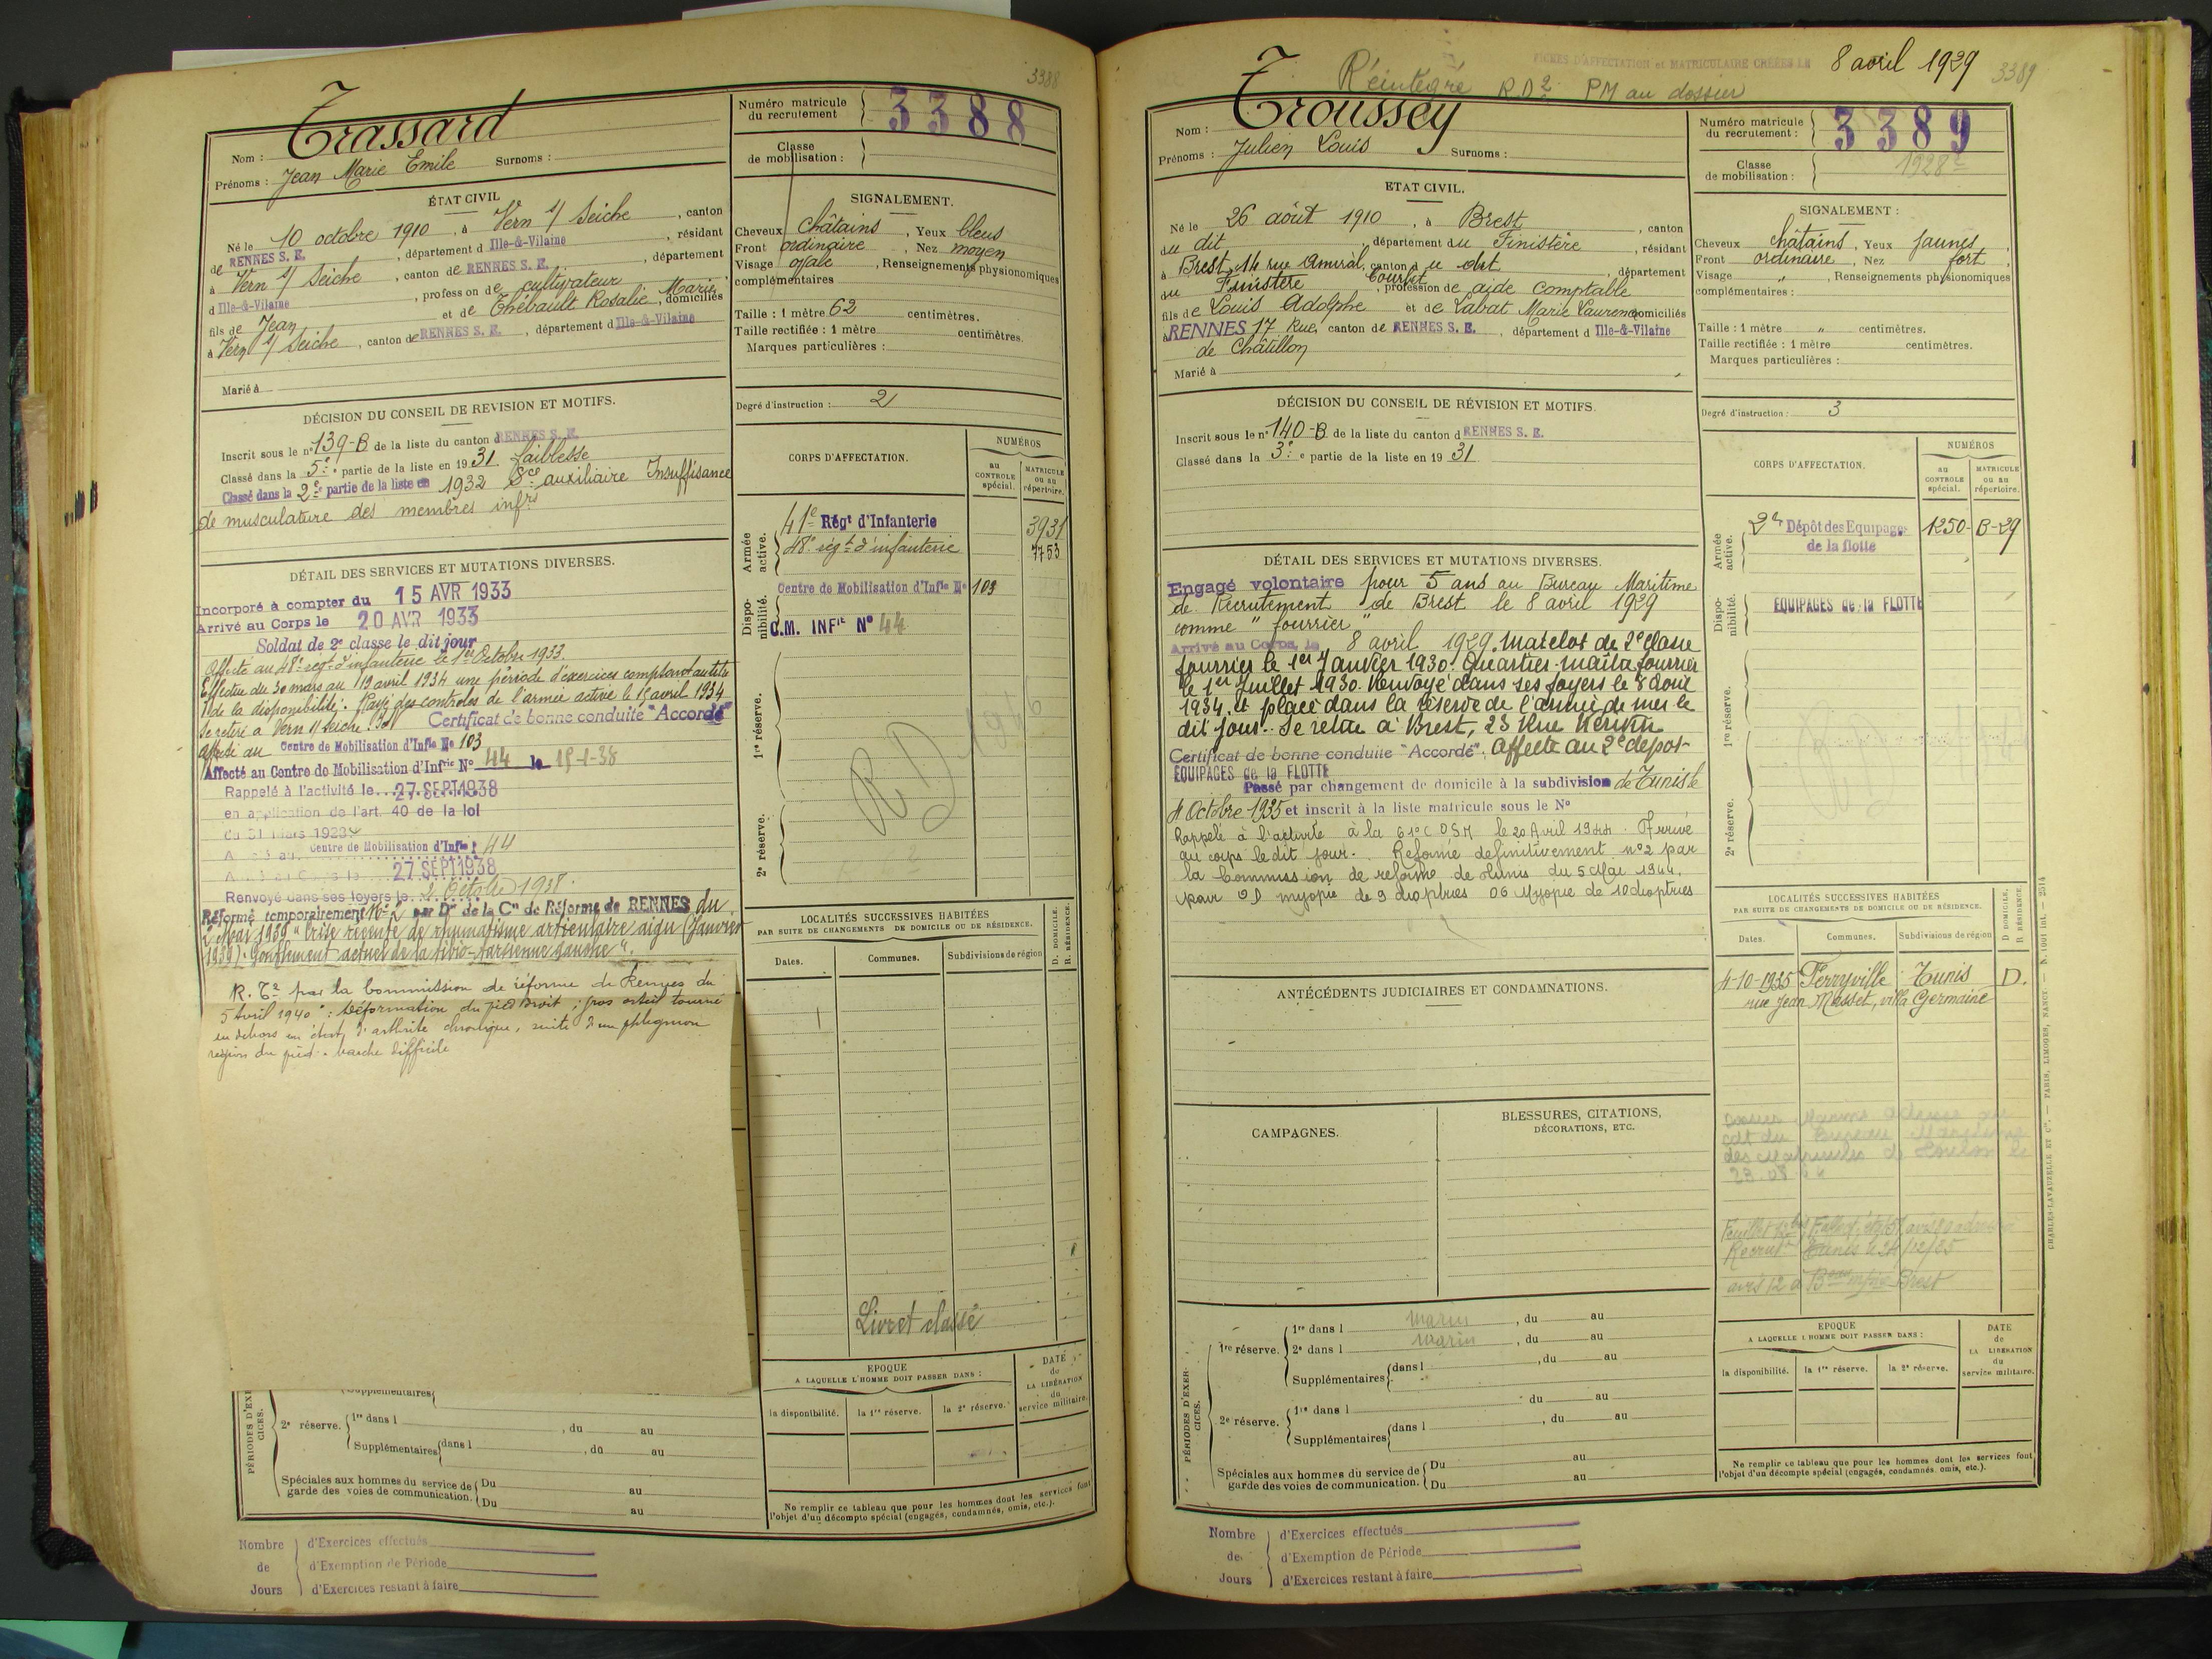 3388
Nom : Trassard
Prénoms : Jean Marie Emile Surnoms :
Numéro matricule du recrutement 3388
Classe de mobilisation :
ÉTAT CIVIL
Né le 10 octobre 1910, à Vern s/ Seiche, canton
de RENNES S. E., département d Ille-&-Vilaine, résidant
à Vern s/ Seiche, canton de RENNES S. E., département
d Ille-&-Vilaine, profession de cultivateur
fils de Jean et de Thébault Rosalie Marie, domiciliés
à Vern s/ Seiche, canton de RENNES S. E., département d Ille-&-Vilaine
Marié à
SIGNALEMENT.
Cheveux châtains, Yeux bleus
Front ordinaire, Nez moyen
Visage ovale, Renseignements physionomiques
complémentaires
Taille : 1 mètre 62 centimètres.
Taille rectifiée : 1 mètre centimètres.
Marques particulières :
Degré d'instruction : 2
DÉCISION DU CONSEIL DE REVISION ET MOTIFS.
Inscrit sous le n° 139-B de la liste du canton d RENNES S. E.
Classé dans la 5e partie de la liste en 1931 faiblesse
Classé dans la 2e partie de la liste en 1932 Sce auxiliaire Insuffisance
de musculature des membres infrs
DÉTAIL DES SERVICES ET MUTATIONS DIVERSES.
Incorporé à compter du 15 AVR 1933
Arrivé au Corps le 20 AVR 1933
Soldat de 2e classe le dit jour
Affecté au 48e regt d'infanterie le 1er Octobre 1933.
Effectue du 30 mars au 19 avril 1934 une période d'exercices comptant au titre
de la disponibilité. Rayé des controles de l'armée active le 15 avril 1934
Se retire à Vern s/ Seiche. Certificat de bonne conduite "Accordé"
Affecté au Centre de Mobilisation d'Infie No 103
Affecté au Centre de Mobilisation d'Infrie No 44 le 15-1-38
Rappelé à l'activité le 27 SEPT 1938
en application de l'art. 40 de la loi
du 31 Mars 1928
Centre de Mobilisation d'Infie 44
27 SEPT 1938
Renvoyé dans ses foyers le 2 Octobre 1938.
Réformé temporairement No 2 par Don de la Con de Réforme de RENNES du
2 Mai 1939 "Crise récente de rhumatisme articulaire aigu (Janvier
1939). Gonflement actuel de la tibio-tarsienne gauche".
R. T2 par la Commission de réforme de Rennes du
5 Avril 1940 : "Déformation du pied droit ; gros orteil tourné
en dehors en état d'arthrite chronique, suite d'un phlegmon
région du pied. Marche difficile
CORPS D'AFFECTATION.
NUMÉROS
au CONTROLE spécial.
MATRICULE ou au répertoire.
Armée active.
41e Régt d'Infanterie 3931
48e régt d'infanterie 7753
Disponibilité.
Centre de Mobilisation d'Infie No 103
C.M. INFie No 44
1re réserve.
RD 1946
2e réserve.
LOCALITÉS SUCCESSIVES HABITÉES
PAR SUITE DE CHANGEMENTS DE DOMICILE OU DE RÉSIDENCE.
D. DOMICILE.
R. RÉSIDENCE.
Dates. Communes. Subdivisions de région
Livret classé
EPOQUE
A LAQUELLE L'HOMME DOIT PASSER DANS :
DATE de LA LIBÉRATION du service militaire.
la disponibilité. la 1re réserve. la 2e réserve.
Ne remplir ce tableau que pour les hommes dont les services font
l'objet d'un décompte spécial (engagés, condamnés, omis, etc.).
PÉRIODES D'EXERCICES.
Supplémentaires
2e réserve. 1re dans l , du au
Supplémentaires dans l , du au
Spéciales aux hommes du service de garde des voies de communication. Du au
Du au
Nombre de Jours
d'Exercices effectués
d'Exemption de Période
d'Exercices restant à faire
FICHES D'AFFECTATION et MATRICULAIRE CRÉÉES LE 8 avril 1929
3389
Réintégré R.D2 PM au dossier
Nom : Troussey
Prénoms : Julien Louis Surnoms :
Numéro matricule du recrutement : 3389
Classe de mobilisation : 1928
ETAT CIVIL.
Né le 26 août 1910, à Brest, canton
du dit, département du Finistère, résidant
à Brest, 14 rue Amiral Courbet, canton du dit, département
du Finistère, profession de aide comptable
fils de Louis Adolphe et de Labat Marie Laurence domiciliés
à RENNES 17 Rue, canton de RENNES S. E., département d Ille-&-Vilaine
de Châtillon
Marié à
SIGNALEMENT :
Cheveux châtains, Yeux jaunes,
Front ordinaire, Nez fort,
Visage ", Renseignements physionomiques
complémentaires :
Taille : 1 mètre " centimètres.
Taille rectifiée : 1 mètre centimètres.
Marques particulières :
Degré d'instruction : 3
DÉCISION DU CONSEIL DE RÉVISION ET MOTIFS.
Inscrit sous le n° 140-B de la liste du canton d RENNES S. E.
Classé dans la 3e partie de la liste en 1931
DÉTAIL DES SERVICES ET MUTATIONS DIVERSES.
Engagé volontaire pour 5 ans au Bureau Maritime
de Recrutement de Brest le 8 avril 1929
comme "fourrier"
Arrivé au Corps, le 8 avril 1929. Matelot de 2e classe
fourrier le 1er Janvier 1930. Quartier-maître fourrier
le 1er Juillet 1930. Renvoyé dans ses foyers le 8 août
1934 et placé dans la réserve de l'armée de mer le
dit jour. Se retire à Brest, 23 Rue
Certificat de bonne conduite "Accordé". Affecté au 2e depot
EQUIPAGES de la FLOTTE
Passé par changement de domicile à la subdivision de Tunis le
4 Octobre 1935 et inscrit à la liste matricule sous le No
Rappelé à l'activité à la 61e C.O.S.M le 20 Avril 1944. Arrivé
au corps le dit jour. Réformé definitivement no 2 par
la Commission de réforme de Tunis du 5 Mai 1944.
pour OD myopie de 9 dioptries OG Myopie de 10 dioptries
CORPS D'AFFECTATION.
NUMÉROS
au CONTROLE spécial.
MATRICULE ou au répertoire.
Armée active.
2e Dépôt des Equipages de la flotte 1250-B-29
Disponibilité.
EQUIPAGES de la FLOTTE
1re réserve.
2e réserve.
ANTÉCÉDENTS JUDICIAIRES ET CONDAMNATIONS.
CAMPAGNES.
BLESSURES, CITATIONS,
DÉCORATIONS, ETC.
LOCALITÉS SUCCESSIVES HABITÉES
PAR SUITE DE CHANGEMENTS DE DOMICILE OU DE RÉSIDENCE.
D DOMICILE.
R RÉSIDENCE.
Dates. Communes. Subdivisions de région
4-10-1935 Ferryville Tunis D.
rue Jean Masset, villa Germaine
PÉRIODES D'EXERCICES.
1re réserve. 1re dans l marin, du au
2e dans l marin, du au
Supplémentaires dans l , du au
2e réserve. 1re dans l du au
Supplémentaires dans l , du au
Spéciales aux hommes du service de garde des voies de communication. Du au
Du au
EPOQUE
A LAQUELLE L'HOMME DOIT PASSER DANS :
DATE de LA LIBÉRATION du service militaire.
la disponibilité. la 1re réserve. la 2e réserve.
Ne remplir ce tableau que pour les hommes dont les services font
l'objet d'un décompte spécial (engagés, condamnés, omis, etc.).
CHARLES-LAVAUZELLE ET Cie. — PARIS, LIMOGES, NANCY.
Nombre de Jours
d'Exercices effectués
d'Exemption de Période
d'Exercices restant à faire